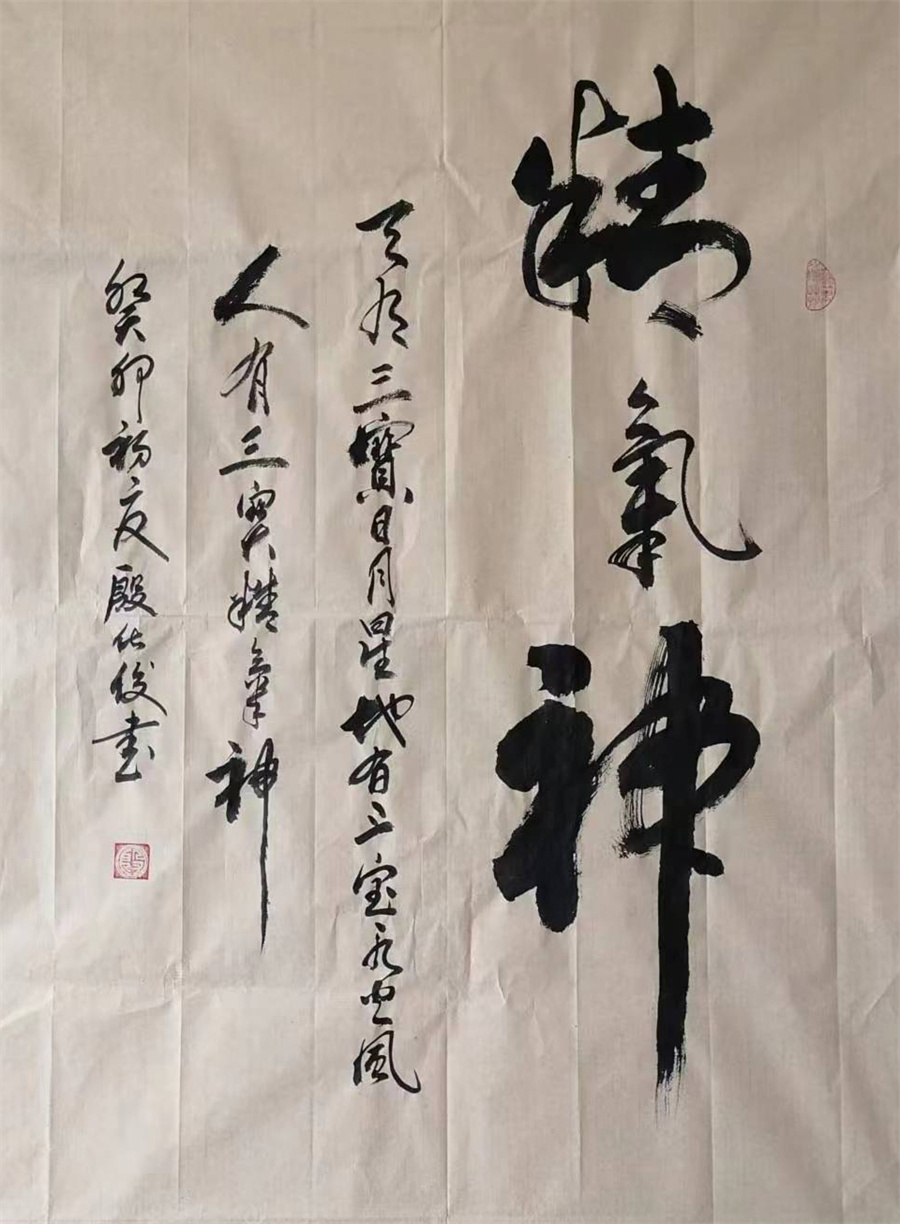 精氣神
天有三寶日月星地有三宝水火風
人有三寶精氣神
癸卯初夏殷俊書